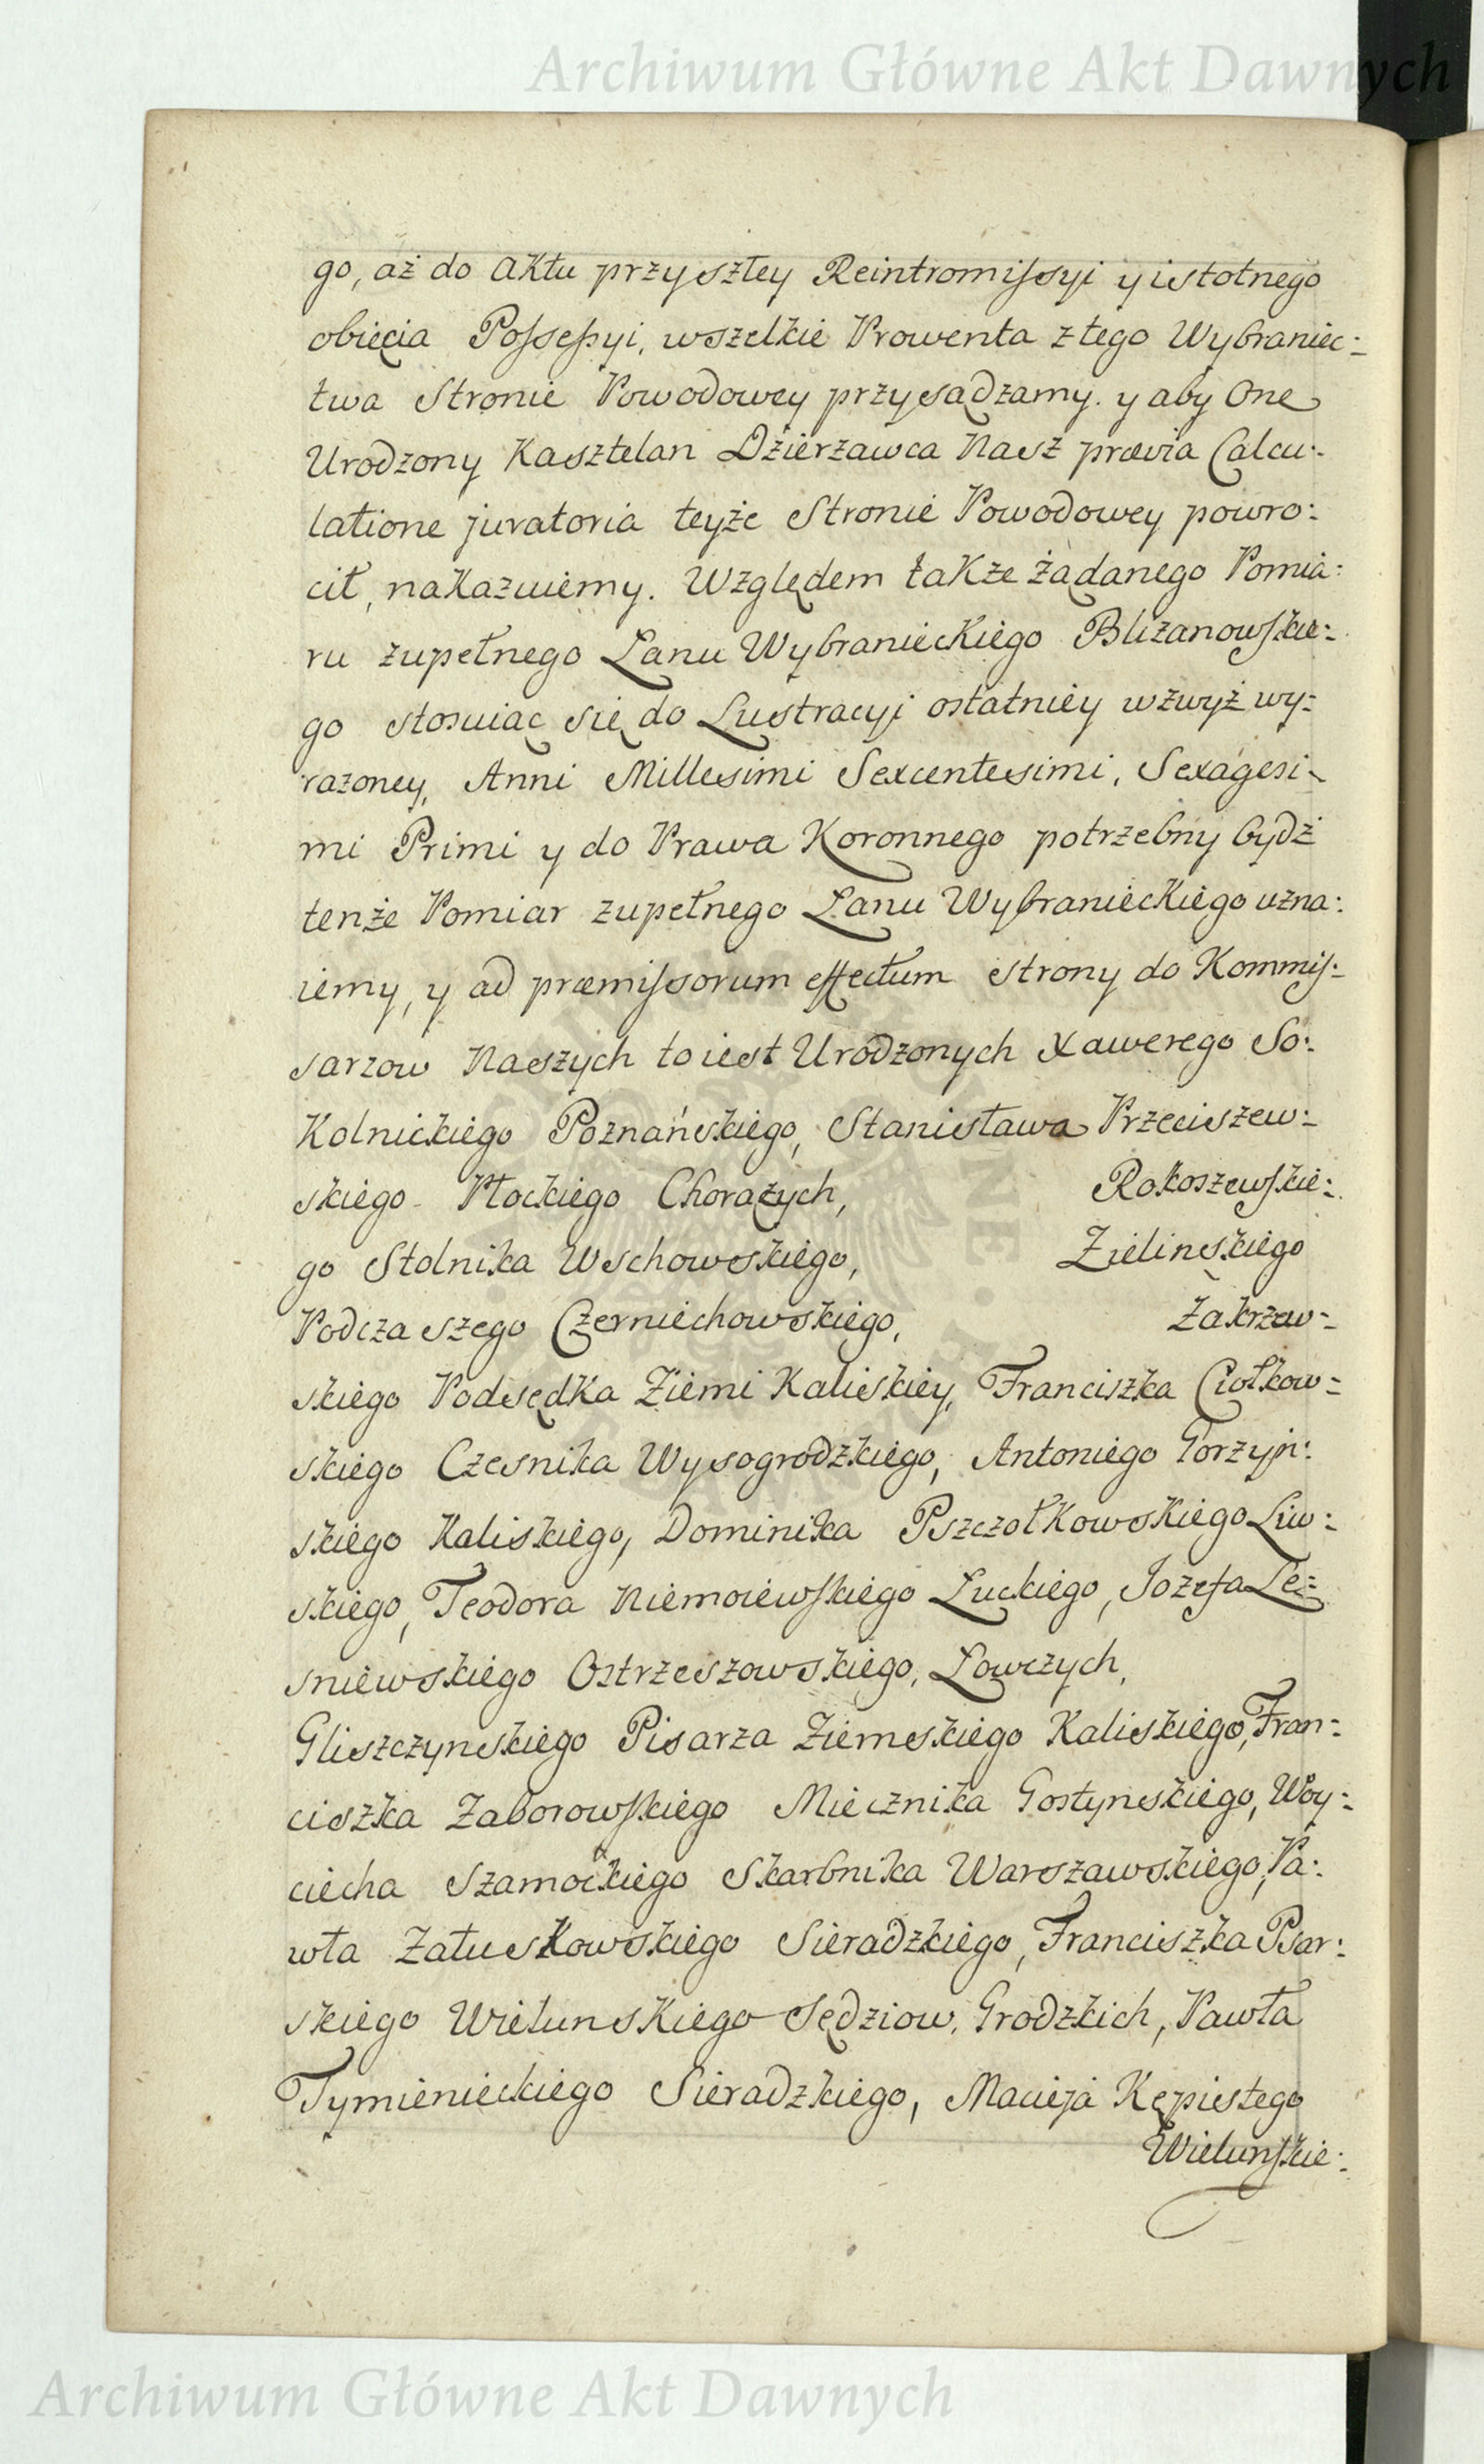 Archiwum Główne Akt Dawnych
go, aż do aktu przyszłey Reintromissyi y istotnego
obięcia Possessyi, wszelkie Prowenta z tego Wybraniec:
twa Stronie Powodowey przysądzamy. y aby One
Urodzony Kasztelan Dzierzawca Nasz prævia Calcu:
latione juratoria teyże Stronie Powodowey powro:
cił, nakazuiemy. Względem także żądanego Pomia:
ru zupełnego Łanu Wybranieckiego Blizanowskie:
go stosuiąc się do Lustracyi ostatniey wzwyż wy:
razoney, Anni Millesimi Sexcentesimi, Sexagesi:
mi Primi y do Prawa Koronnego potrzebny bydź
tenże Pomiar zupełnego Łanu Wybranieckiego uzna:
iemy, y ad præmissorum effectum strony do Kommis:
sarzow Naszych to iest Urodzonych Xawerego So:
kolnickiego Poznańskiego, Stanisława Przeciszew:
skiego Płockiego Chorążych, Rokoszewskie:
go Stolnika Wschowskiego, Zielinskiego
Podczaszego Czerniechowskiego, Zakrzew:
skiego Podsędka Ziemi Kaliskiey, Franciszka Ciołkow:
skiego Czesnika Wysogrodzkiego, Antoniego Gorzyń:
skiego Kaliskiego, Dominika Pszczołkowskiego Liw:
skiego, Teodora Niemoiewskiego Łuckiego, Jozefa Le:
sniewskiego Ostrzeszowskiego, Łowczych,
Gliszczynskiego Pisarza Ziemskiego Kaliskiego, Fran:
ciszka Zaborowskiego Miecznika Gostynskiego, Woy:
ciecha Szamockiego Skarbnika Warszawskiego, Pa:
wła Załuskowskiego Sieradzkiego, Franciszka Psar:
skiego Wielunskiego Sędziow Grodzkich, Pawła
Tymienieckiego Sieradzkiego, Macieja Kępistego
Wielunskie:
Archiwum Główne Akt Dawnych